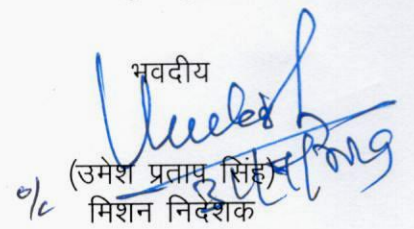 भवदीय
(उमेश प्रताप सिंह)
o/c मिशन निदेशक